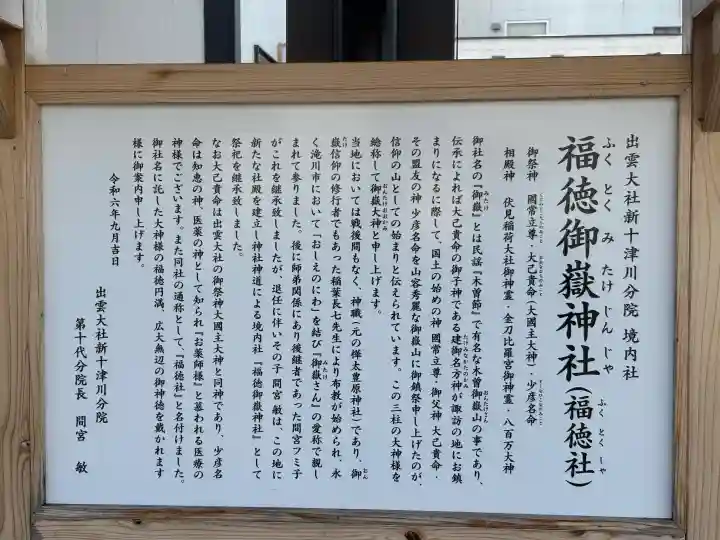 出雲大社新十津川分院 境内社
福徳御嶽神社(福徳社)
ふくとくみたけじんじゃ ふくとくしゃ
御祭神 國常立尊・大己貴命(大國主大神)・少彦名命
相殿神 伏見稲荷大社御神霊・金刀比羅宮御神霊・八百万大神
御社名の『御嶽』とは民謡『木曽節』で有名な木曽御嶽山の事であり、
伝承によれば大己貴命の御子神である建御名方神が諏訪の地にお鎮
まりになるに際して、国土の始めの神 國常立尊・御父神 大己貴命・
その盟友の神 少彦名命を山容秀麗な御嶽山に御鎮祭申し上げたのが、
信仰の山としての始まりと伝えられています。この三柱の大神様を
総称して御嶽大神と申し上げます。
当地においては戦後間もなく、神職(元の樺太豊原神社)であり、御
嶽信仰の修行者でもあった稲葉長七先生により布教が始められ、永
く滝川市において『おしえのにわ』を結び『御嶽さん』の愛称で親し
まれて参りました。後に師弟関係にあり後継者であった間宮フミ子
がこれを継承致しましたが、退任に伴いその子 間宮 敏は、この地に
新たな社殿を建立し神社神道による境内社『福徳御嶽神社』として
祭祀を継承致しました。
なお大己貴命は出雲大社の御祭神大國主大神と同神であり、少彦名
命は知恵の神、医薬の神として知られ『お薬師様』と慕われる医療の
神様でございます。また同社の通称として、『福徳社』と名付けました。
御社名に託した大神様の福徳円満、広大無辺の御神徳を戴かれます
様に御案内申し上げます。
令和六年九月吉日
出雲大社新十津川分院
第十代分院長 間宮 敏